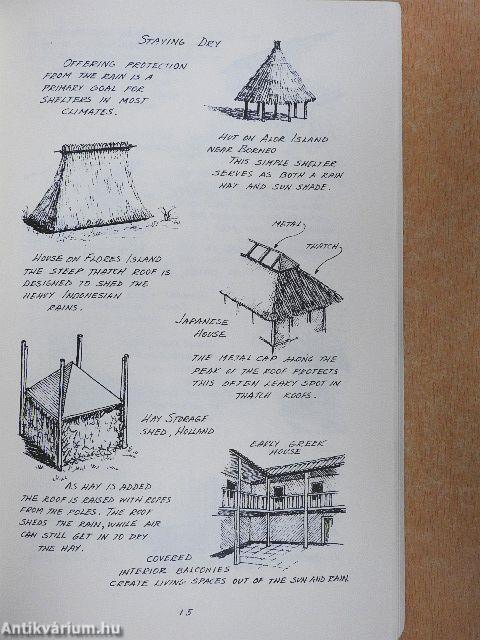 STAYING DRY
OFFERING PROTECTION
FROM THE RAIN IS A
PRIMARY GOAL FOR
SHELTERS IN MOST
CLIMATES.
HUT ON ALOR ISLAND
NEAR BORNEO
THIS SIMPLE SHELTER
SERVES AS BOTH A RAIN
HAT AND SUN SHADE.
HOUSE ON FLORES ISLAND
THE STEEP THATCH ROOF IS
DESIGNED TO SHED THE
HEAVY INDONESIAN
RAINS.
METAL
THATCH
JAPANESE
HOUSE
THE METAL CAP ALONG THE
PEAK OF THE ROOF PROTECTS
THIS OFTEN LEAKY SPOT IN
THATCH ROOFS.
HAY STORAGE
SHED, HOLLAND
AS HAY IS ADDED
THE ROOF IS RAISED WITH ROPES
FROM THE POLES. THE ROOF
SHEDS THE RAIN, WHILE AIR
CAN STILL GET IN TO DRY
THE HAY.
EARLY GREEK
HOUSE
COVERED
INTERIOR BALCONIES
CREATE LIVING SPACES OUT OF THE SUN AND RAIN.
15
Antikvárium.hu